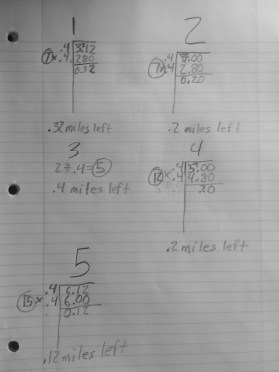 1
.4 3.12
7 x .4 2.80
0.32
.32 miles left
2
.4 3.00
7 x .4 2.80
0.20
.2 miles left
3
2 ÷ .4 = 5
.4 miles left
4
.4 5.00
12 x .4 4.80
.20
.2 miles left
5
.4 6.12
15 x .4 6.00
0.12
.12 miles left